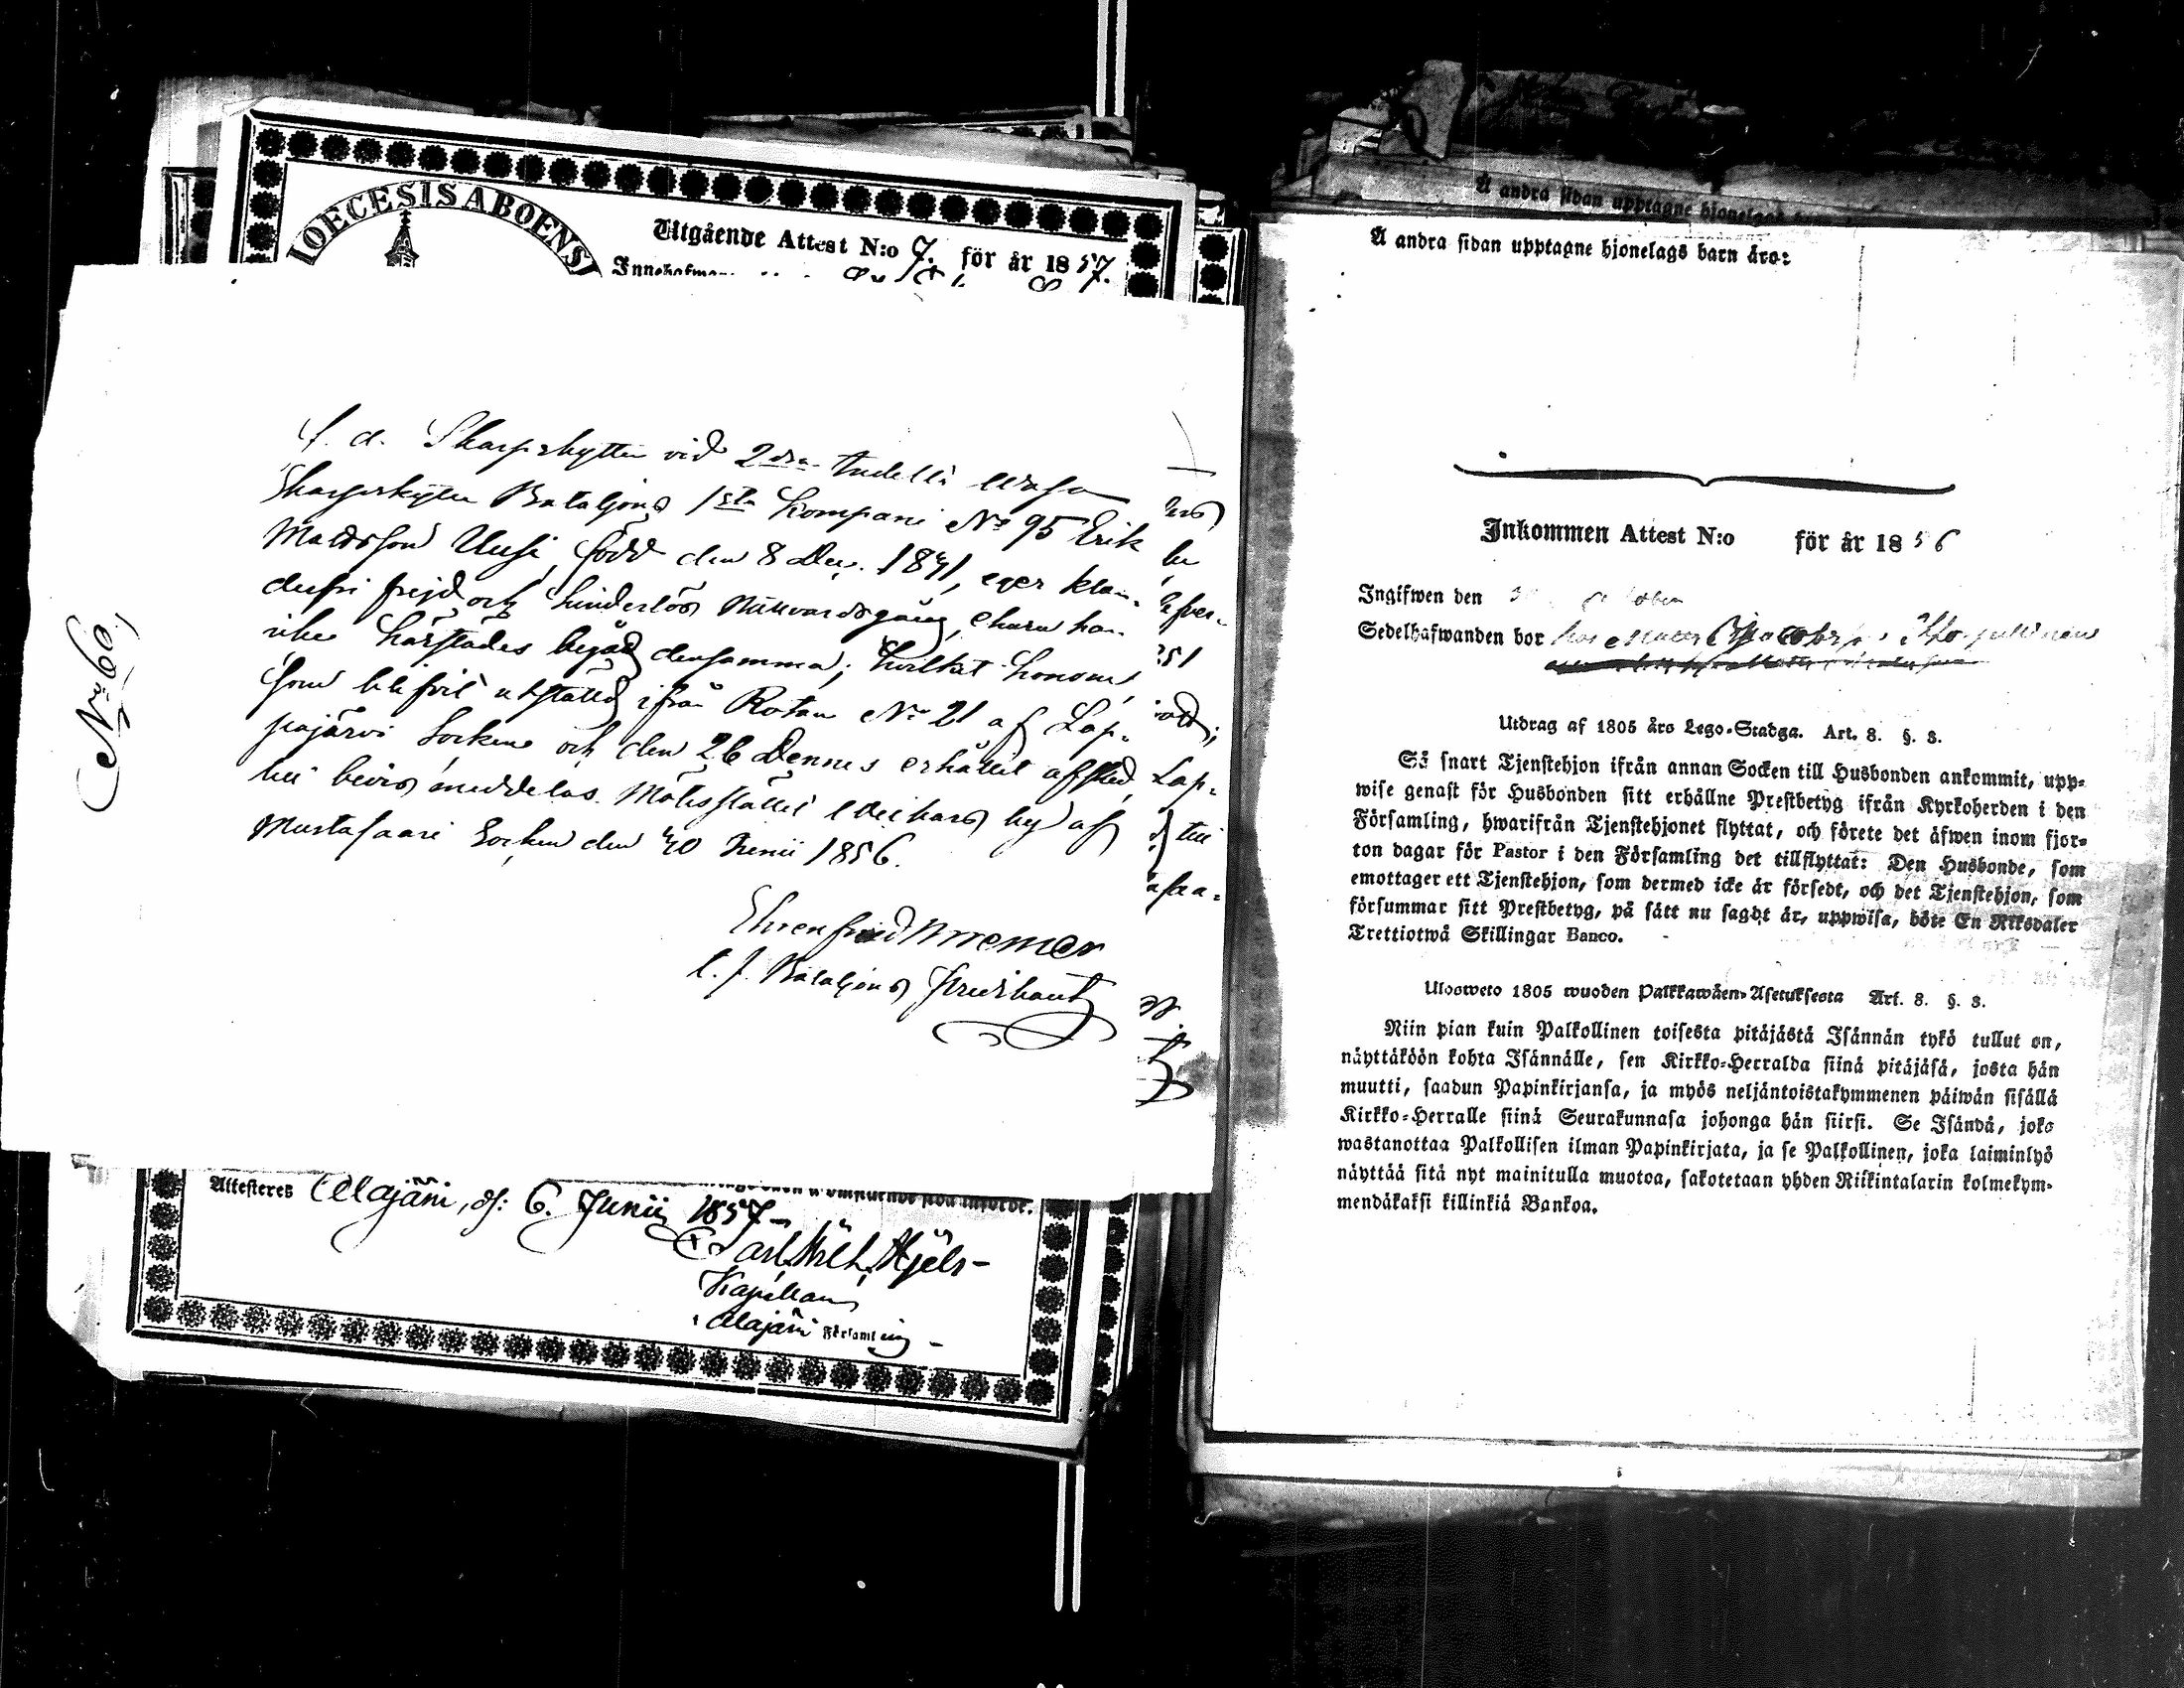 DIOECESIS ABOENSIS
Utgående Attest N:o 7. för år 1857.
No 60,
f. d. Skarpskytten vid 2dra Indelta Wasa
Skarpskytte Bataljons 1sta Kompani No 95 Erik
Mattsson Uusi, född den 8 Dec. 1831, eger klan-
derfri frejd och hinderlös Nattvardsgång, ehuru han
icke härstädes begådt densamma; hvilket honom,
som blifvit utstäld ifrån Rotan No 21 af Lap-
pajärvi Socken och den 26 Dennes erhållit afsked,
till bevis meddelas. Mötesstället Weikars by af
Mustasaari Socken den 30 Junii 1856.
Ehrenfried
t. f. Bataljons
251
Lap-
till
asaa-
Attesteres Alajärvi, d: 6. Junii 1857
Carl Wilh. Hjelt
Kapellan
i Alajärvi Församling
Å andra sidan upptagne hjonelags barn
Å andra sidan upptagne hjonelags barn äro:
Inkommen Attest N:o för år 1856
Ingifwen den
Sedelhafwanden bor hos
Utdrag af 1805 års Lego-Stadga. Art. 8. §. 3.
Så snart Tjenstehjon ifrån annan Socken till Husbonden ankommit, upp-
wise genast för Husbonden sitt erhållne Prestbetyg ifrån Kyrkoherden i den
Församling, hwarifrån Tjenstehjonet flyttat, och förete det äfwen inom fjor-
ton dagar för Pastor i den Församling det tillflyttat: Den Husbonde, som
emottager ett Tjenstehjon, som dermed icke är försedt, och det Tjenstehjon, som
försummar sitt Prestbetyg, på sätt nu sagdt är, uppwisa, böte En Riksdaler
Trettiotwå Skillingar Banco.
Ulosweto 1805 wuoden Palkkawäen-Asetuksesta Art. 8. §. 3.
Niin pian kuin Palkollinen toisesta pitäjästä Isännän tykö tullut on,
näyttäköön kohta Isännälle, sen Kirkko-Herralda siinä pitäjäsä, josta hän
muutti, saadun Papinkirjansa, ja myös neljäntoistakymmenen päiwän sisällä
Kirkko-Herralle siinä Seurakunnasa johonga hän siirsi. Se Isändä, joka
wastanottaa Palkollisen ilman Papinkirjata, ja se Palkollinen, joka laiminlyö
näyttää sitä nyt mainitulla muotoa, sakotetaan yhden Riikintalarin kolmekym-
mendäkaksi killinkiä Bankoa.